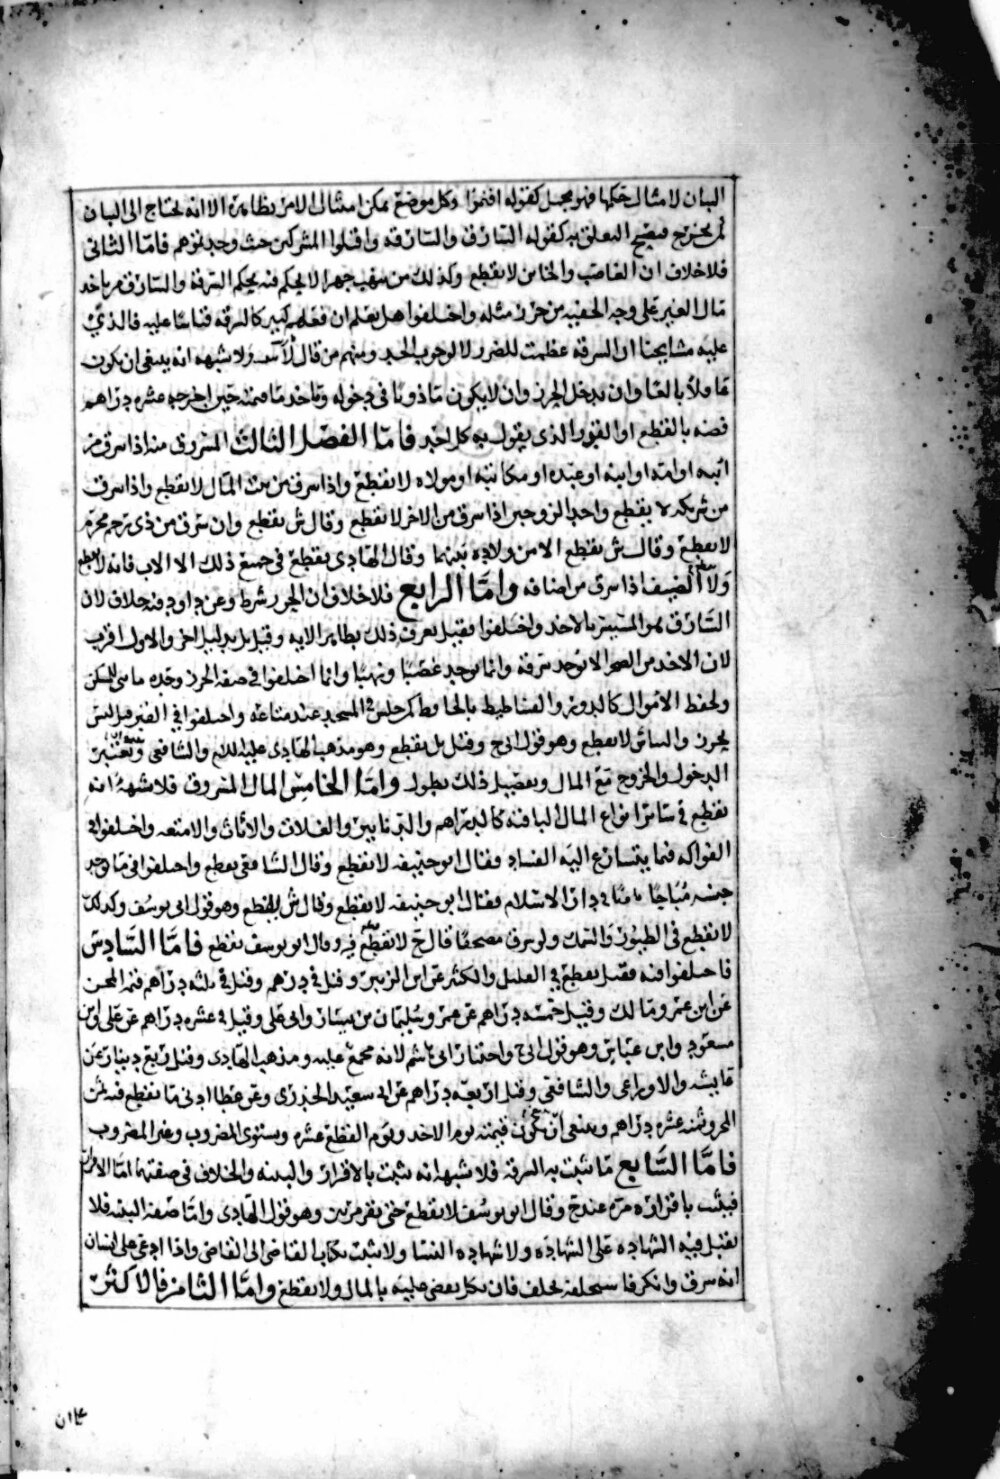 البيان لامثال حكمها فهو مجمل كقوله اقيموا وكل موضع يمكن امتثال الامر بظاهره الا انه يحتاج الى البيان
لمن يخرج فيصح التعلق به كقوله السارق والسارقة واقتلوا المشركين حيث وجدتموهم فاما الثاني
فلا خلاف ان الغاصب والخاين لا يقطع وكذلك من ينهب جهرا لا يحكم فيه بحكم السرقة والسارق من ياخذ
مال الغير على وجه الخفية من حرز مثله واختلفوا هل يعلم ان فعله كبير كالسرقة قياسا عليه فالذي
عليه مشايخنا ان السرقة عظمت للضرر لا لوجوب الحد ومنهم من قال ولا شبهه انه ينبغي ان يكون
عاقلا بالغا وان يدخل الحرز وان لا يكون ماذونا في دخوله وياخذ ما قيمته حين اخرجه عشره دراهم
فضه بالقطع او الفور الذي يقول به كل احد فاما الفصل الثالث المسروق منه اذا سرق من
ابيه او امه او ابنه او عبده او مكاتبه او مولاه لا يقطع واذا سرق من بيت المال لا يقطع واذا سرق
من شريكه لا يقطع واحد الزوجين اذا سرق من الاخر لا يقطع وقال ش يقطع وان سرق من ذي رحم محرم
لا يقطع وقال ش يقطع الا من ولاده بينهما وقال الهادي يقطع في جميع ذلك الا الاب فانه لا يقطع
ولا الضيف اذا سرق من اضافه واما الرابع فلا خلاف ان الحرز شرط وعن داود فيه خلاف لان
السارق هو المستتر بالاخذ واختلفوا فقيل يعرف ذلك بظاهر الايه وقيل بل بدليل اخر والاول اقرب
لان الاخذ من الصحرا لا يوجد سرقة وانما يوجد غصبا ونهبا وانما اختلفوا في صفة الحرز وحده ما بني للسكن
ولحفظ الاموال كالدور والفساطيط بالحافظ كمن جلس في المسجد عند متاعه واختلفوا في القبر هل ليس
بحرز والسارق لا يقطع وهو قول ابي ح وقيل بل يقطع وهو مذهب الهادي عليه السلام والشافعي ويعتبر
الدخول والخروج مع المال وتفصيل ذلك يطول واما الخامس المال المسروق فلا شبهة انه
يقطع في سائر انواع المال الباقية كالدراهم والدنانير والغلات والاثاث والامتعه واختلفوا في
الفواكه فيما يتسارع اليه الفساد فقال ابو حنيفه لا يقطع وقال الشافعي يقطع واختلفوا في ما يوجد
جنسه مباحا تافها في دار الاسلام فقال ابو حنيفه لا يقطع وقال ش يقطع وهو قول ابي يوسف وكذلك
لا يقطع في الطيور والسمك ولو سرق مصحفا قال ح لا يقطع فيه وقال ابو يوسف يقطع فاما السادس
فاختلفوا فيه فقيل يقطع في القليل والكثير عن ابن الزبير وقيل في درهم وقيل في ثلثه دراهم
عن ابن عمر ومالك وقيل خمسه دراهم عن عمر وسليمان بن يسار وابي علي وقيل في عشره دراهم عن علي وابن
مسعود وابن عباس وهو قول ابي ح واختيار ابي هاشم لانه مجمع عليه ومذهب الهادي وقيل ربع دينار عن
عايشه والاوزاعي والشافعي وقيل اربعه دراهم عن ابي سعيد الخدري وعن عطا ادنى ما يقطع فيه ثمن
المجن وثمنه عشره دراهم وينبغي ان يكون قيمته يوم الاخذ ويوم القطع عشره ويستوي المضروب وغير المضروب
فاما السابع ما ثبت به السرقة فلا شبهه انه يثبت بالاقرار والبينه والخلاف في صفتهما اما الاقرار
فيثبت باقراره مره عند ح وقال ابو يوسف لا يقطع حتى يقر مرتين وهو قول الهادي واما صفة البينه فلا
يقبل فيه الشهاده على الشهاده ولا شهاده النسا ولا يثبت بكتاب القاضي الى القاضي واذا ادعى على انسان
انه سرق وانكر فاستحلفه يحلف فان نكل يقضى عليه بالمال ولا يقطع واما الثامن فالاكثر